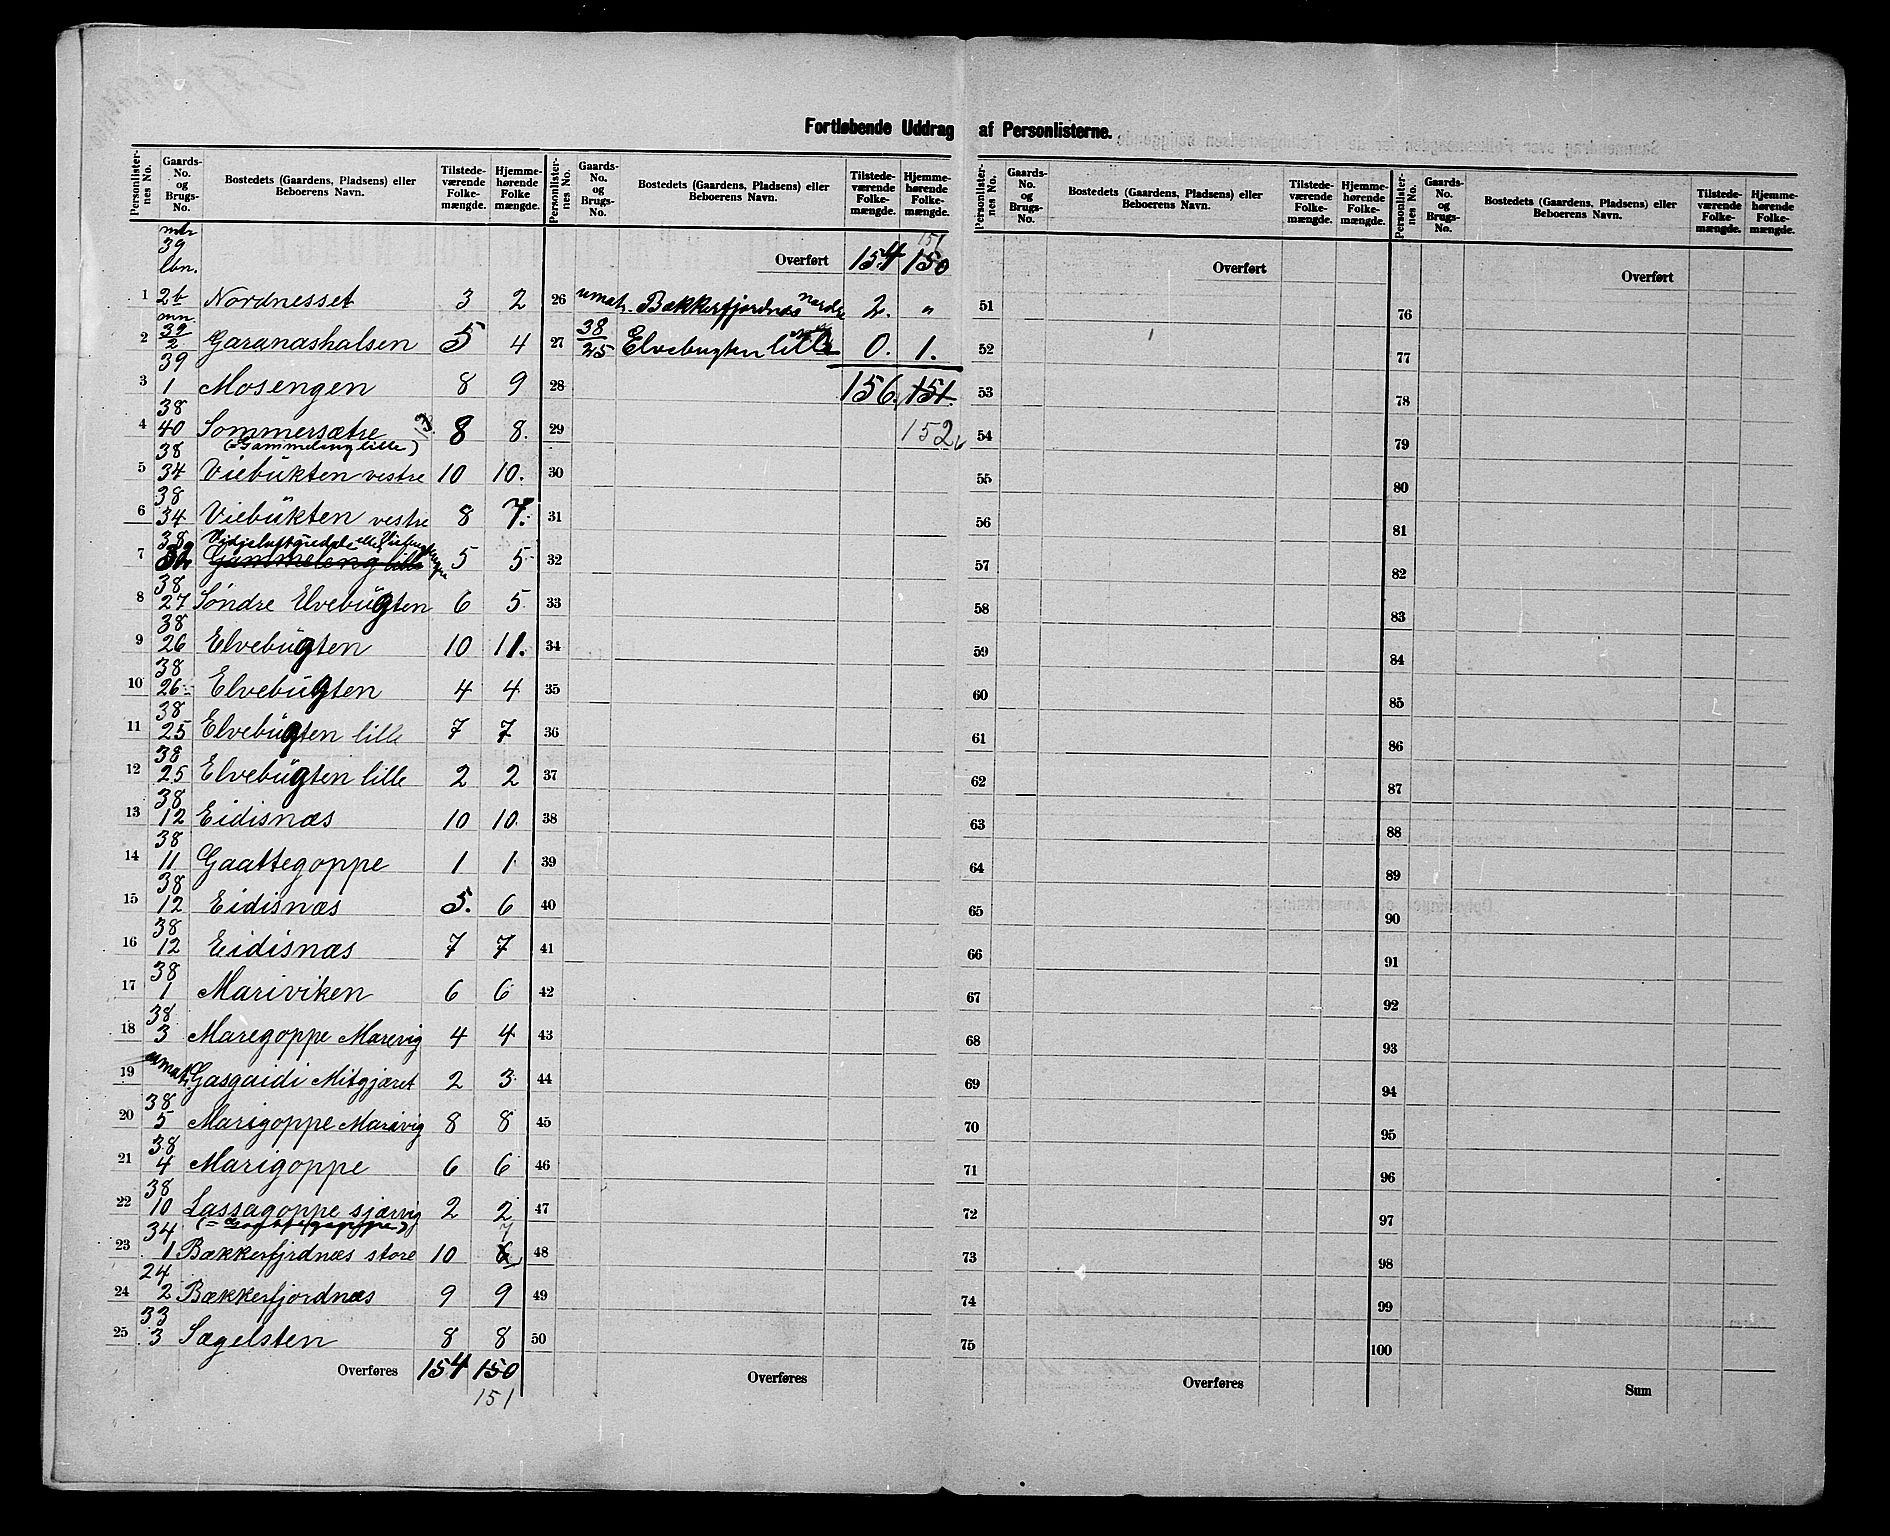 Fortløbende Uddrag af Personlisterne.
Personlister-nes No. | Gaards-No. og Brugs-No. | Bostedets (Gaardens, Pladsens) eller Beboerens Navn. | Tilstede-værende Folke-mængde. | Hjemme-hørende Folke mængde.
mtr 39 lbn.
1 2b Nordnesset 3 2
mn.
2 39/2 Garanashalsen 5 4
3 39 1 Mosengen 8 9
4 38 40 Sommersætre 8 8.
(= Gammeleng lille)
5 38 34 Viebukten vestre 10 10.
6 38 34 Viebukten vestre 8 7.
7 38 32 Gammeleng lille 5 5
8 38 27 Søndre Elvebugten 6 5
9 38 26 Elvebugten 10 11.
10 38 26 Elvebugten 4 4
11 38 25 Elvebugten lille 7 7
12 38 25 Elvebugten lille 2 2
13 38 12 Eidisnæs 10 10.
14 38 11 Gaattegoppe 1 1
15 38 12 Eidisnæs 5. 6
16 38 12 Eidisnæs 7 7
17 38 1 Mariviken 6 6
18 38 3 Maregoppe Marevig 4 4
19 umatr. Gasgaidi Mitgjæret 2 3
20 38 5 Marigoppe Marivig 8 8
21 38 4 Marigoppe 6 6
22 38 10 Lassagoppe sjærvig 2 2
23 34 1 Bækkerfjrdnæs store 10 6 7
24 24 2 Bækkerfjordnæs 9 9
25 33 3 Sægelsten 8 8
Overføres 154 150
151
Personlister-nes No. | Gaards-No. og Brugs-No. | Bostedets (Gaardens, Pladsens) eller Beboerens Navn. | Tilstede-værende Folke-mængde. | Hjemme-hørende Folke-mængde.
151
Overført 154 150
26 umatr. Bækkerfjordnæs 2. "
27 38/25 Elvebugten lille 0. 1.
28 156. 151.
29 152
30
31
32
33
34
35
36
37
38
39
40
41
42
43
44
45
46
47
48
49
50
Overføres
Personlister-nes No. | Gaards-No. og Brugs-No. | Bostedets (Gaardens, Pladsens) eller Beboerens Navn. | Tilstede-værende Folke-mængde. | Hjemme-hørende Folke-mængde.
Overført
51
52
53
54
55
56
57
58
59
60
61
62
63
64
65
66
67
68
69
70
71
72
73
74
75
Overføres
Personlister-nes No. | Gaards-No. og Brugs-No. | Bostedets (Gaardens, Pladsens) eller Beboerens Navn. | Tilstede-værende Folke-mængde. | Hjemme-hørende Folke-mængde.
Overført
76
77
78
79
80
81
82
83
84
85
86
87
88
89
90
91
92
93
94
95
96
97
98
99
100
Sum